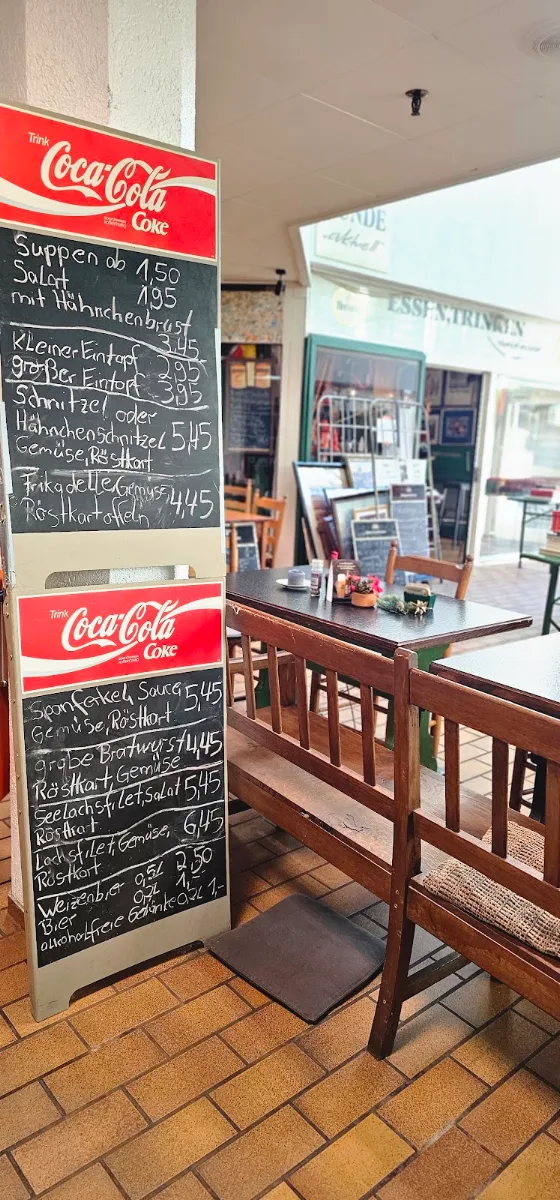 Trink
Coca-Cola
Coke
Suppen ab 1,50
Salat 1,95
mit Hähnchenbrust
3,45
Kleiner Eintopf 2,95
großer Eintopf 3,95
Schnitzel oder
Hähnchenschnitzel 5,45
Gemüse, Röstkart.
Frikadelle, Gemüse
Röstkartoffeln 4,45
Trink
Coca-Cola
Coke
Spanferkel, Sauce 5,45
Gemüse, Röstkart.
grobe Bratwurst 4,45
Röstkart, Gemüse
Seelachsfilet, Salat 5,45
Röstkart
Lachsfilet, Gemüse, 6,45
Röstkart
Weizenbier 0,5L 2,50
Bier 0,2L
alkoholfreie Getränke 0,2L 1,-
UNDE
aktuell
ESSEN, TRINKEN